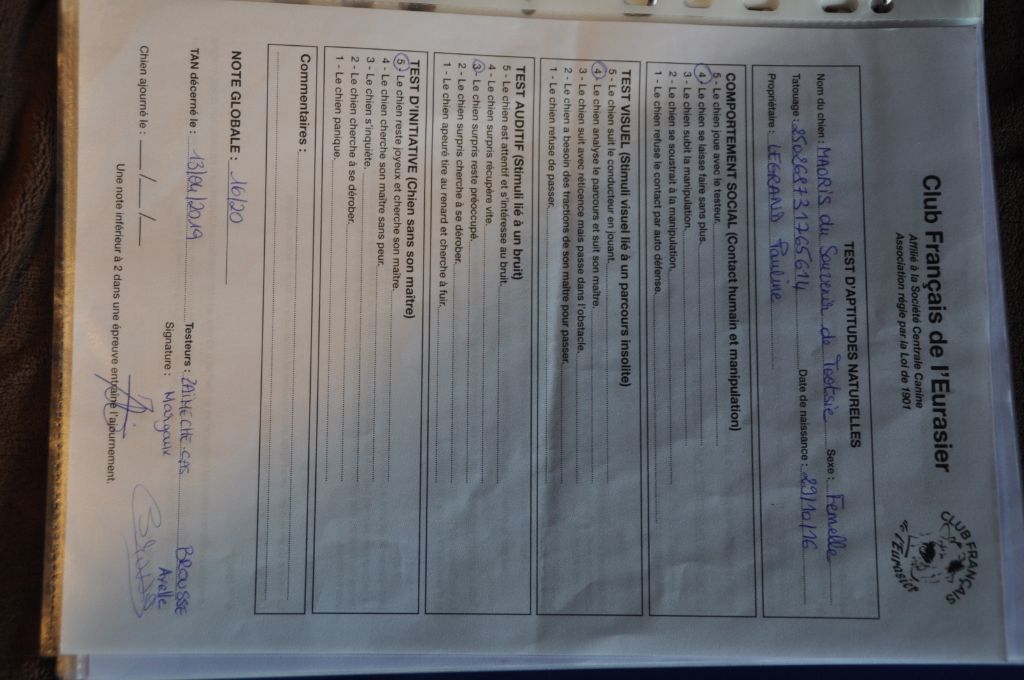 Club Français de l'Eurasier
Affilié à la Société Centrale Canine
Association régie par la Loi de 1901
CLUB FRANÇAIS
de l'Eurasier
TEST D'APTITUDES NATURELLES
Nom du chien : MAORIS du Sorzeur de Tootsie Sexe : Femelle
Tatouage : 250268731765614 Date de naissance : 29/10/16
Propriétaire : LEGRAND Pauline
COMPORTEMENT SOCIAL (Contact humain et manipulation)
5 - Le chien joue avec le testeur.
4 - Le chien se laisse faire sans plus.
3 - Le chien subit la manipulation.
2 - Le chien se soustrait à la manipulation.
1 - Le chien refuse le contact par auto défense.
TEST VISUEL (Stimuli visuel lié à un parcours insolite)
5 - Le chien suit le conducteur en jouant.
4 - Le chien analyse le parcours et suit son maître.
3 - Le chien suit avec réticence mais passe dans l'obstacle.
2 - Le chien a besoin des tractions de son maître pour passer.
1 - Le chien refuse de passer.
TEST AUDITIF (Stimuli lié à un bruit)
5 - Le chien est attentif et s'intéresse au bruit.
4 - Le chien surpris récupère vite.
3 - Le chien surpris reste préoccupé.
2 - Le chien surpris cherche à se dérober.
1 - Le chien apeuré tire au renard et cherche à fuir.
TEST D'INITIATIVE (Chien sans son maître)
5 - Le chien reste joyeux et cherche son maître.
4 - Le chien cherche son maître sans peur.
3 - Le chien s'inquiète.
2 - Le chien cherche à se dérober.
1 - Le chien panique.
Commentaires :
NOTE GLOBALE : 16/20
TAN décerné le : 13/04/2019 Testeurs : BROUSSE
Signature : Margaux Axelle
Chien ajourné le : __/__/__
Une note inférieur à 2 dans une épreuve entraîne l'ajournement.